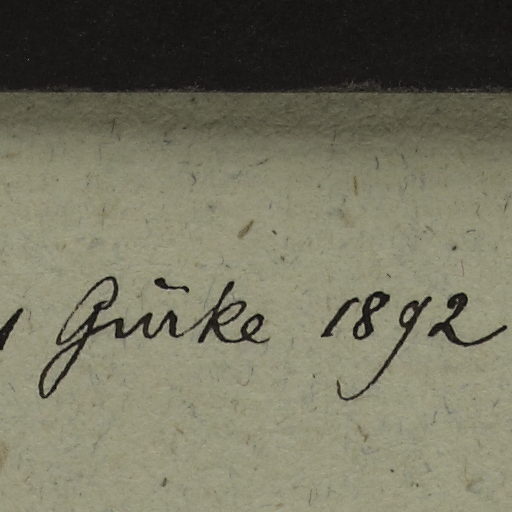 Gürke 1892